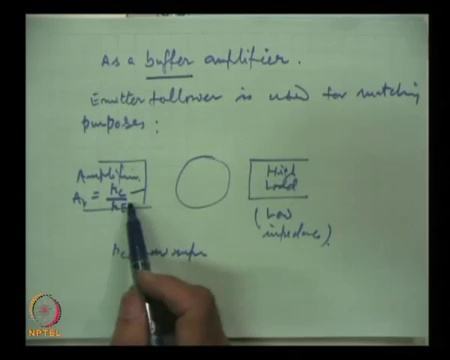 As a buffer amplifier.
Emitter follower is used for matching
purposes:
Amplifier
High
Load
(Low
impedance)
NPTEL